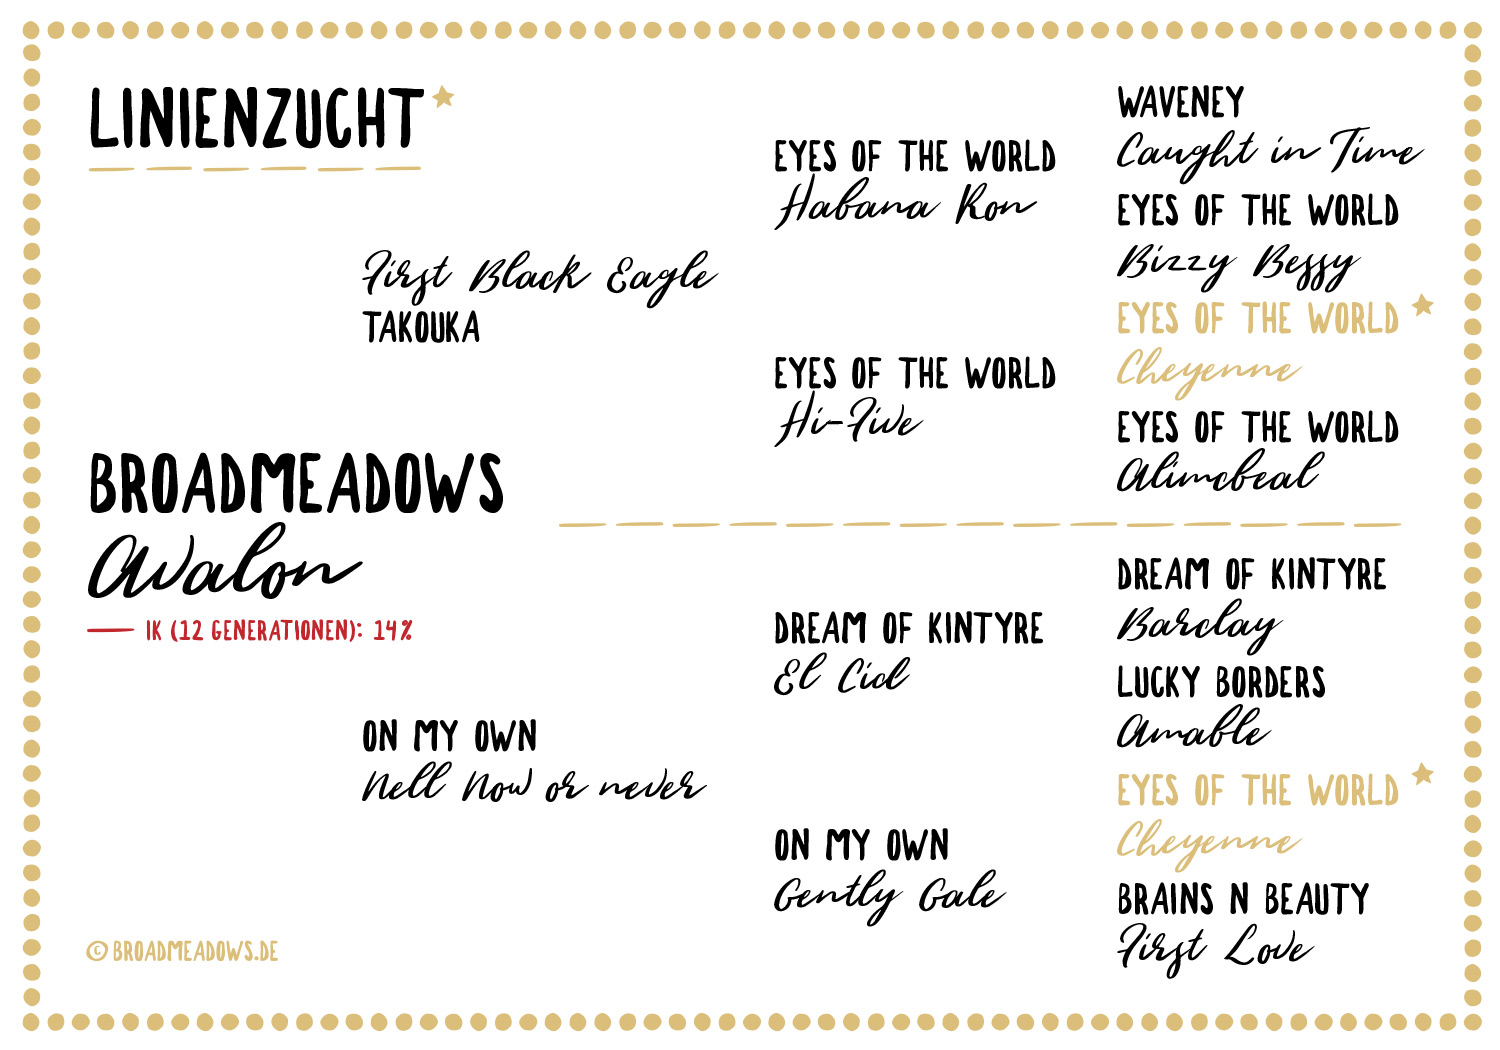 LINIENZUCHT
First Black Eagle
TAKOUKA
BROADMEADOWS
Avalon
IK (12 GENERATIONEN): 14%
ON MY OWN
Nell Now or never
EYES OF THE WORLD
Habana Ron
EYES OF THE WORLD
Hi-Five
DREAM OF KINTYRE
El Cid
ON MY OWN
Gently Gale
WAVENEY
Caught in Time
EYES OF THE WORLD
Bizzy Bessy
EYES OF THE WORLD
Cheyenne
EYES OF THE WORLD
Alimcbeal
DREAM OF KINTYRE
Barclay
LUCKY BORDERS
Amable
EYES OF THE WORLD
Cheyenne
BRAINS N BEAUTY
First Love
© BROADMEADOWS.DE